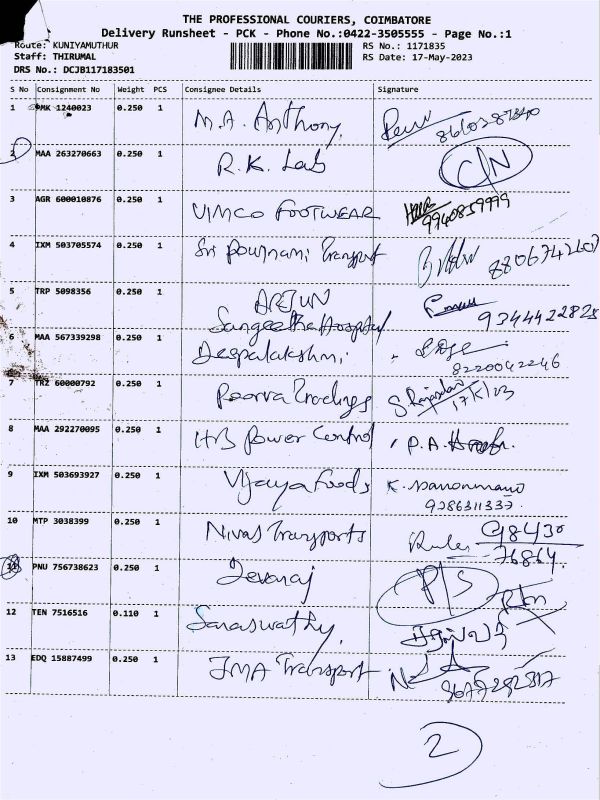 THE PROFESSIONAL COURIERS, COIMBATORE
Delivery Runsheet - PCK - Phone No.:0422-3505555 - Page No.:1
Route: KUNIYAMUTHUR RS No.: 1171835
Staff: THIRUMAL RS Date: 17-May-2023
DRS No.: DCJB117183501
S No Consignment No Weight PCS Consignee Details Signature
1 PMK 1240023 0.250 1 M.A. Anthony.
2 MAA 263270663 0.250 1 R.K. Lab C/N
3 AGR 600010876 0.250 1 VIMCO FOOTWEAR
9940859999
4 IXM 503705574 0.250 1 Sri Pournami Transport 8806742607
5 TRP 5098356 0.250 1 ARJUN
Sangeetha Hospital 9344422825
6 MAA 567339298 0.250 1 Deepalakshmi
8220042246
7 TRZ 60000792 0.250 1 Poorva Tradings
17/5/23
8 MAA 292270095 0.250 1 HB Power Control P.A.
9 IXM 503693927 0.250 1 Vijaya Foods K. Manonmano
9286311337
10 MTP 3038399 0.250 1 Nivas Transports 98430
76864
11 PNU 756738623 0.250 1 Devaraj P/S
Rtn
12 TEN 7516516 0.110 1 Saraswathy.
13 EDQ 15887499 0.250 1 JMA Transport
8677292817
2